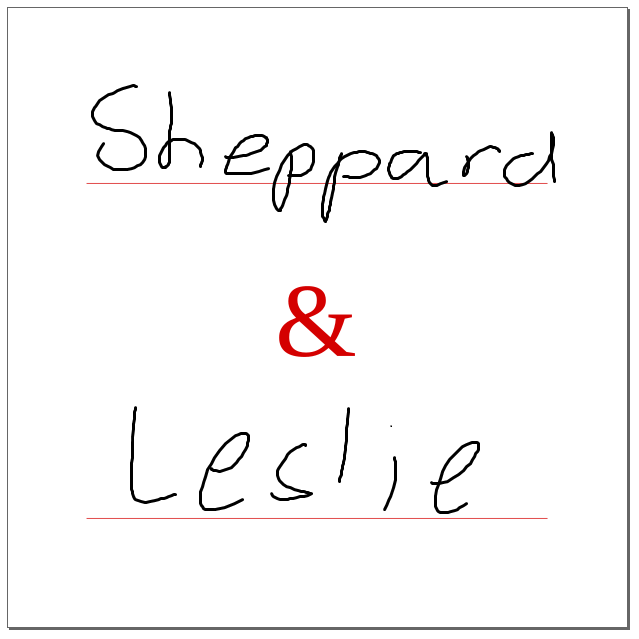 Sheppard
&
Leslie